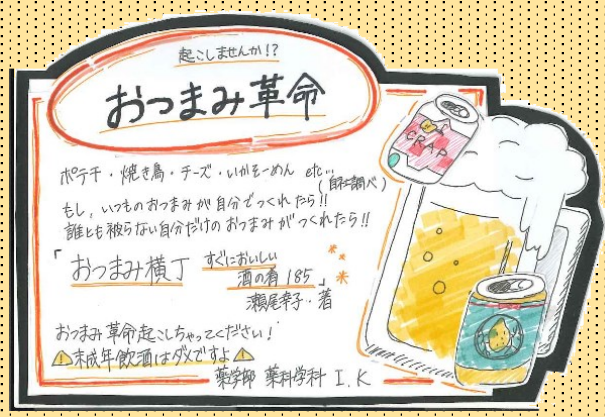 起こしませんか!?
おつまみ革命
ポテチ・焼き鳥・チーズ・いかそーめん etc...
(自社調べ)
もし、いつものおつまみが自分でつくれたら!!
誰とも被らない自分だけのおつまみがつくれたら!!
「おつまみ横丁 すぐにおいしい
酒の肴185」
瀬尾幸子:著
おつまみ革命起こしちゃってください!
⚠未成年飲酒はダメですよ⚠
薬学部 薬科学科 I.K
CRAP